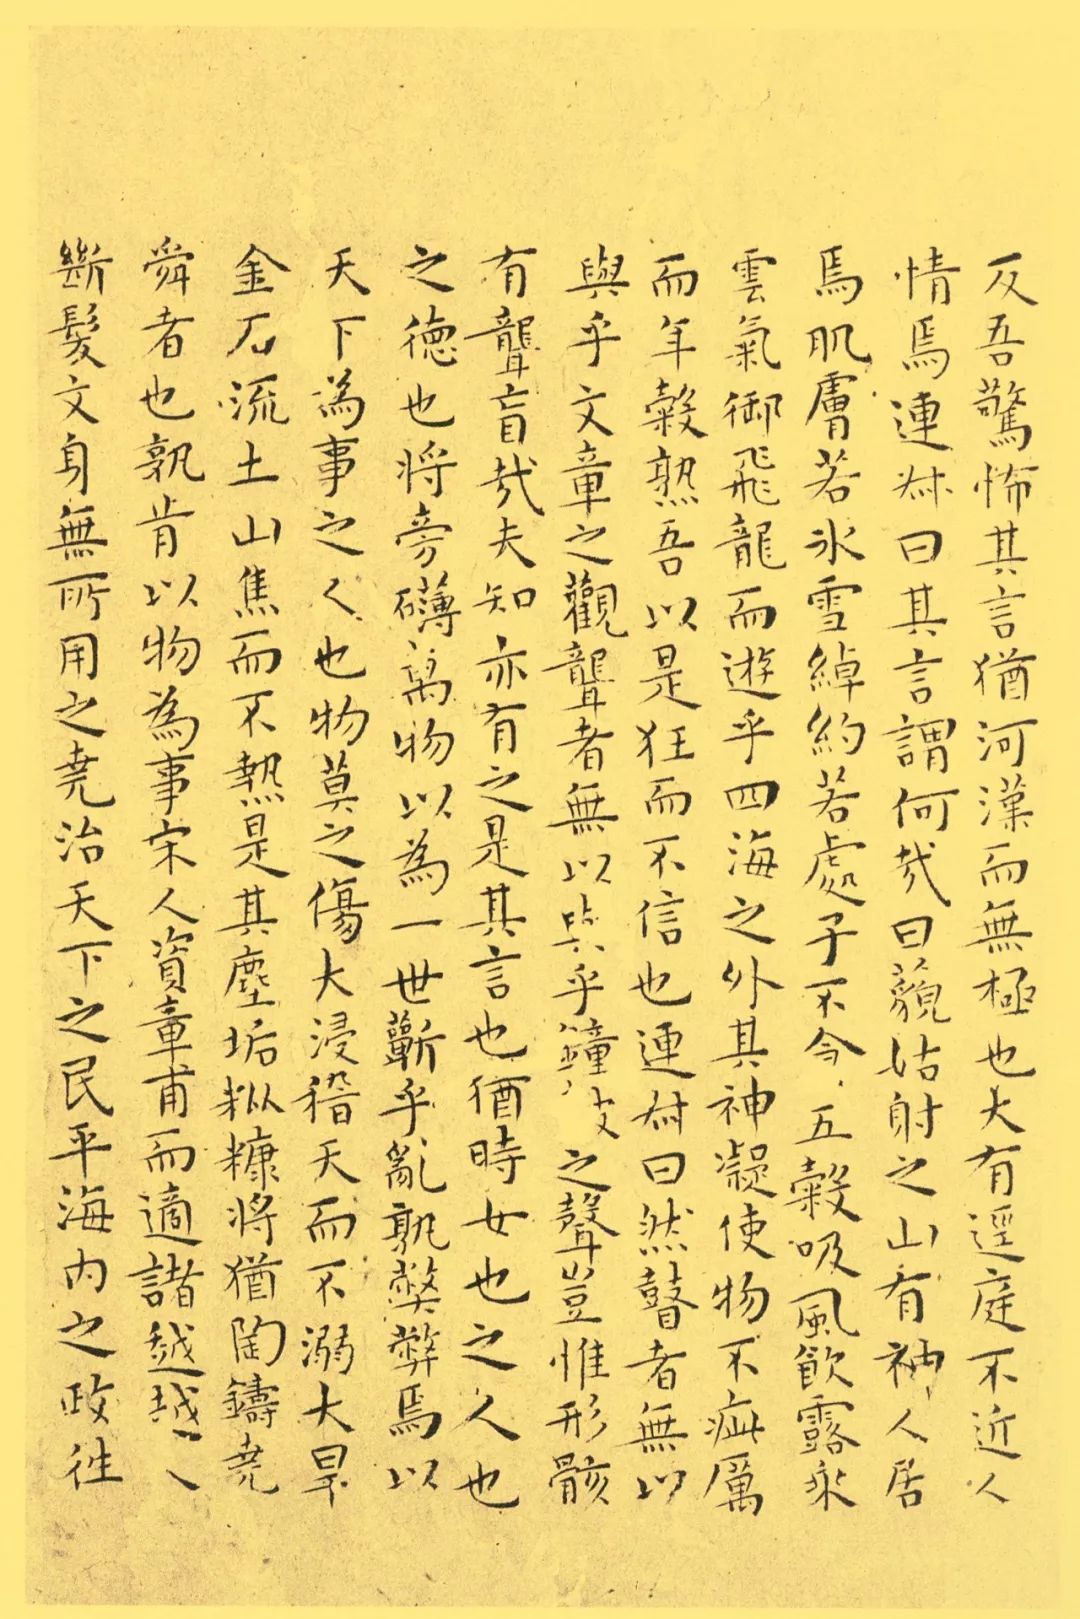 反吾驚怖其言猶河漢而無極也大有逕庭不近人
情焉連叔曰其言謂何哉曰藐姑射之山有神人居
焉肌膚若氷雪綽約若處子不食五穀吸風飲露乘
雲氣御飛龍而遊乎四海之外其神凝使物不疵厲
而年穀熟吾以是狂而不信也連叔曰然瞽者無以
與乎文章之觀聾者無以與乎鐘鼓之聲豈惟形骸
有聾盲哉夫知亦有之是其言也猶時女也之人也
之德也將旁礴萬物以為一世蘄乎亂孰獘弊焉以
天下為事之人也物莫之傷大浸稽天而不溺大旱
金石流土山焦而不熱是其塵垢粃糠將猶陶鑄堯
舜者也孰肯以物為事宋人資章甫而適諸越越〻
斷髮文身無所用之堯治天下之民平海内之政往